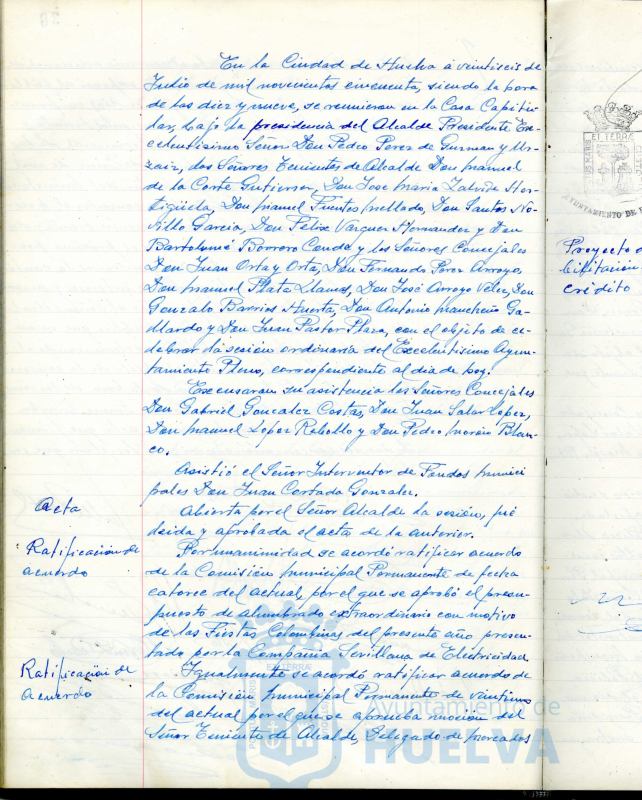 En la Ciudad de Huelva á veintiseis de
Julio de mil novecientos cincuenta, siendo la hora
de las diez y nueve, se reunieron en la Casa Capitu-
lar, bajo la presidencia del Alcalde Presidente Ex-
celentisimo Señor Don Pedro Perez de Guzman y Ur-
zaiz, los Señores Tenientes de Alcalde Don Manuel
de la Corte Gutierrez, Don Jose Maria Zalvide Hor-
tigüela, Don Manuel Fuentes Mellado, Don Santos No-
villo Garcia, Don Felix Vazquez Hernandez y Don
Bartolomé Borrero Conde y los Señores Concejales
Don Juan Orta y Orta, Don Fernando Perez Arroyo,
Don Manuel Plata Llamas, Don José Arroyo Velez, Don
Gonzalo Barrios Huerta, Don Antonio Mancheño Ga-
llardo y Don Juan Pastor Plaza, con el objeto de ce-
lebrar la sesión ordinaria del Excelentisimo Ayun-
tamiento Pleno, correspondiente al dia de hoy.
Excusaron su asistencia los Señores Concejales
Don Gabriel Gonzalez Costas, Don Juan Salar Lopez,
Don Manuel Lopez Rebollo y Don Pedro Morón Blan-
co.
Asistió el Señor Interventor de Fondos Munici
pales Don Juan Cortada Gonzalez.
Acta
Abierta por el Señor Alcalde la sesión, fué
leida y aprobada el acta de la anterior.
Ratificación de
acuerdo
Por unanimidad se acordó ratificar acuerdo
de la Comisión Municipal Permanente de fecha
catorce del actual, por el que se aprobó el presu-
puesto de alumbrado extraordinario con motivo
de las Fiestas Colombinas del presente año presen-
tado por la Compañia Sevillana de Electricidad
Ratificación de
acuerdo
Igualmente se acordó ratificar acuerdo de
la Comisión Municipal Permanente de veintiuno
del actual por el que se aprueba moción del
Señor Teniente de Alcalde, Delegado de Mercados
Proyecto d
bilitación
crédito
AYUNTAMIENTO DE
Ayuntamiento de
HUELVA